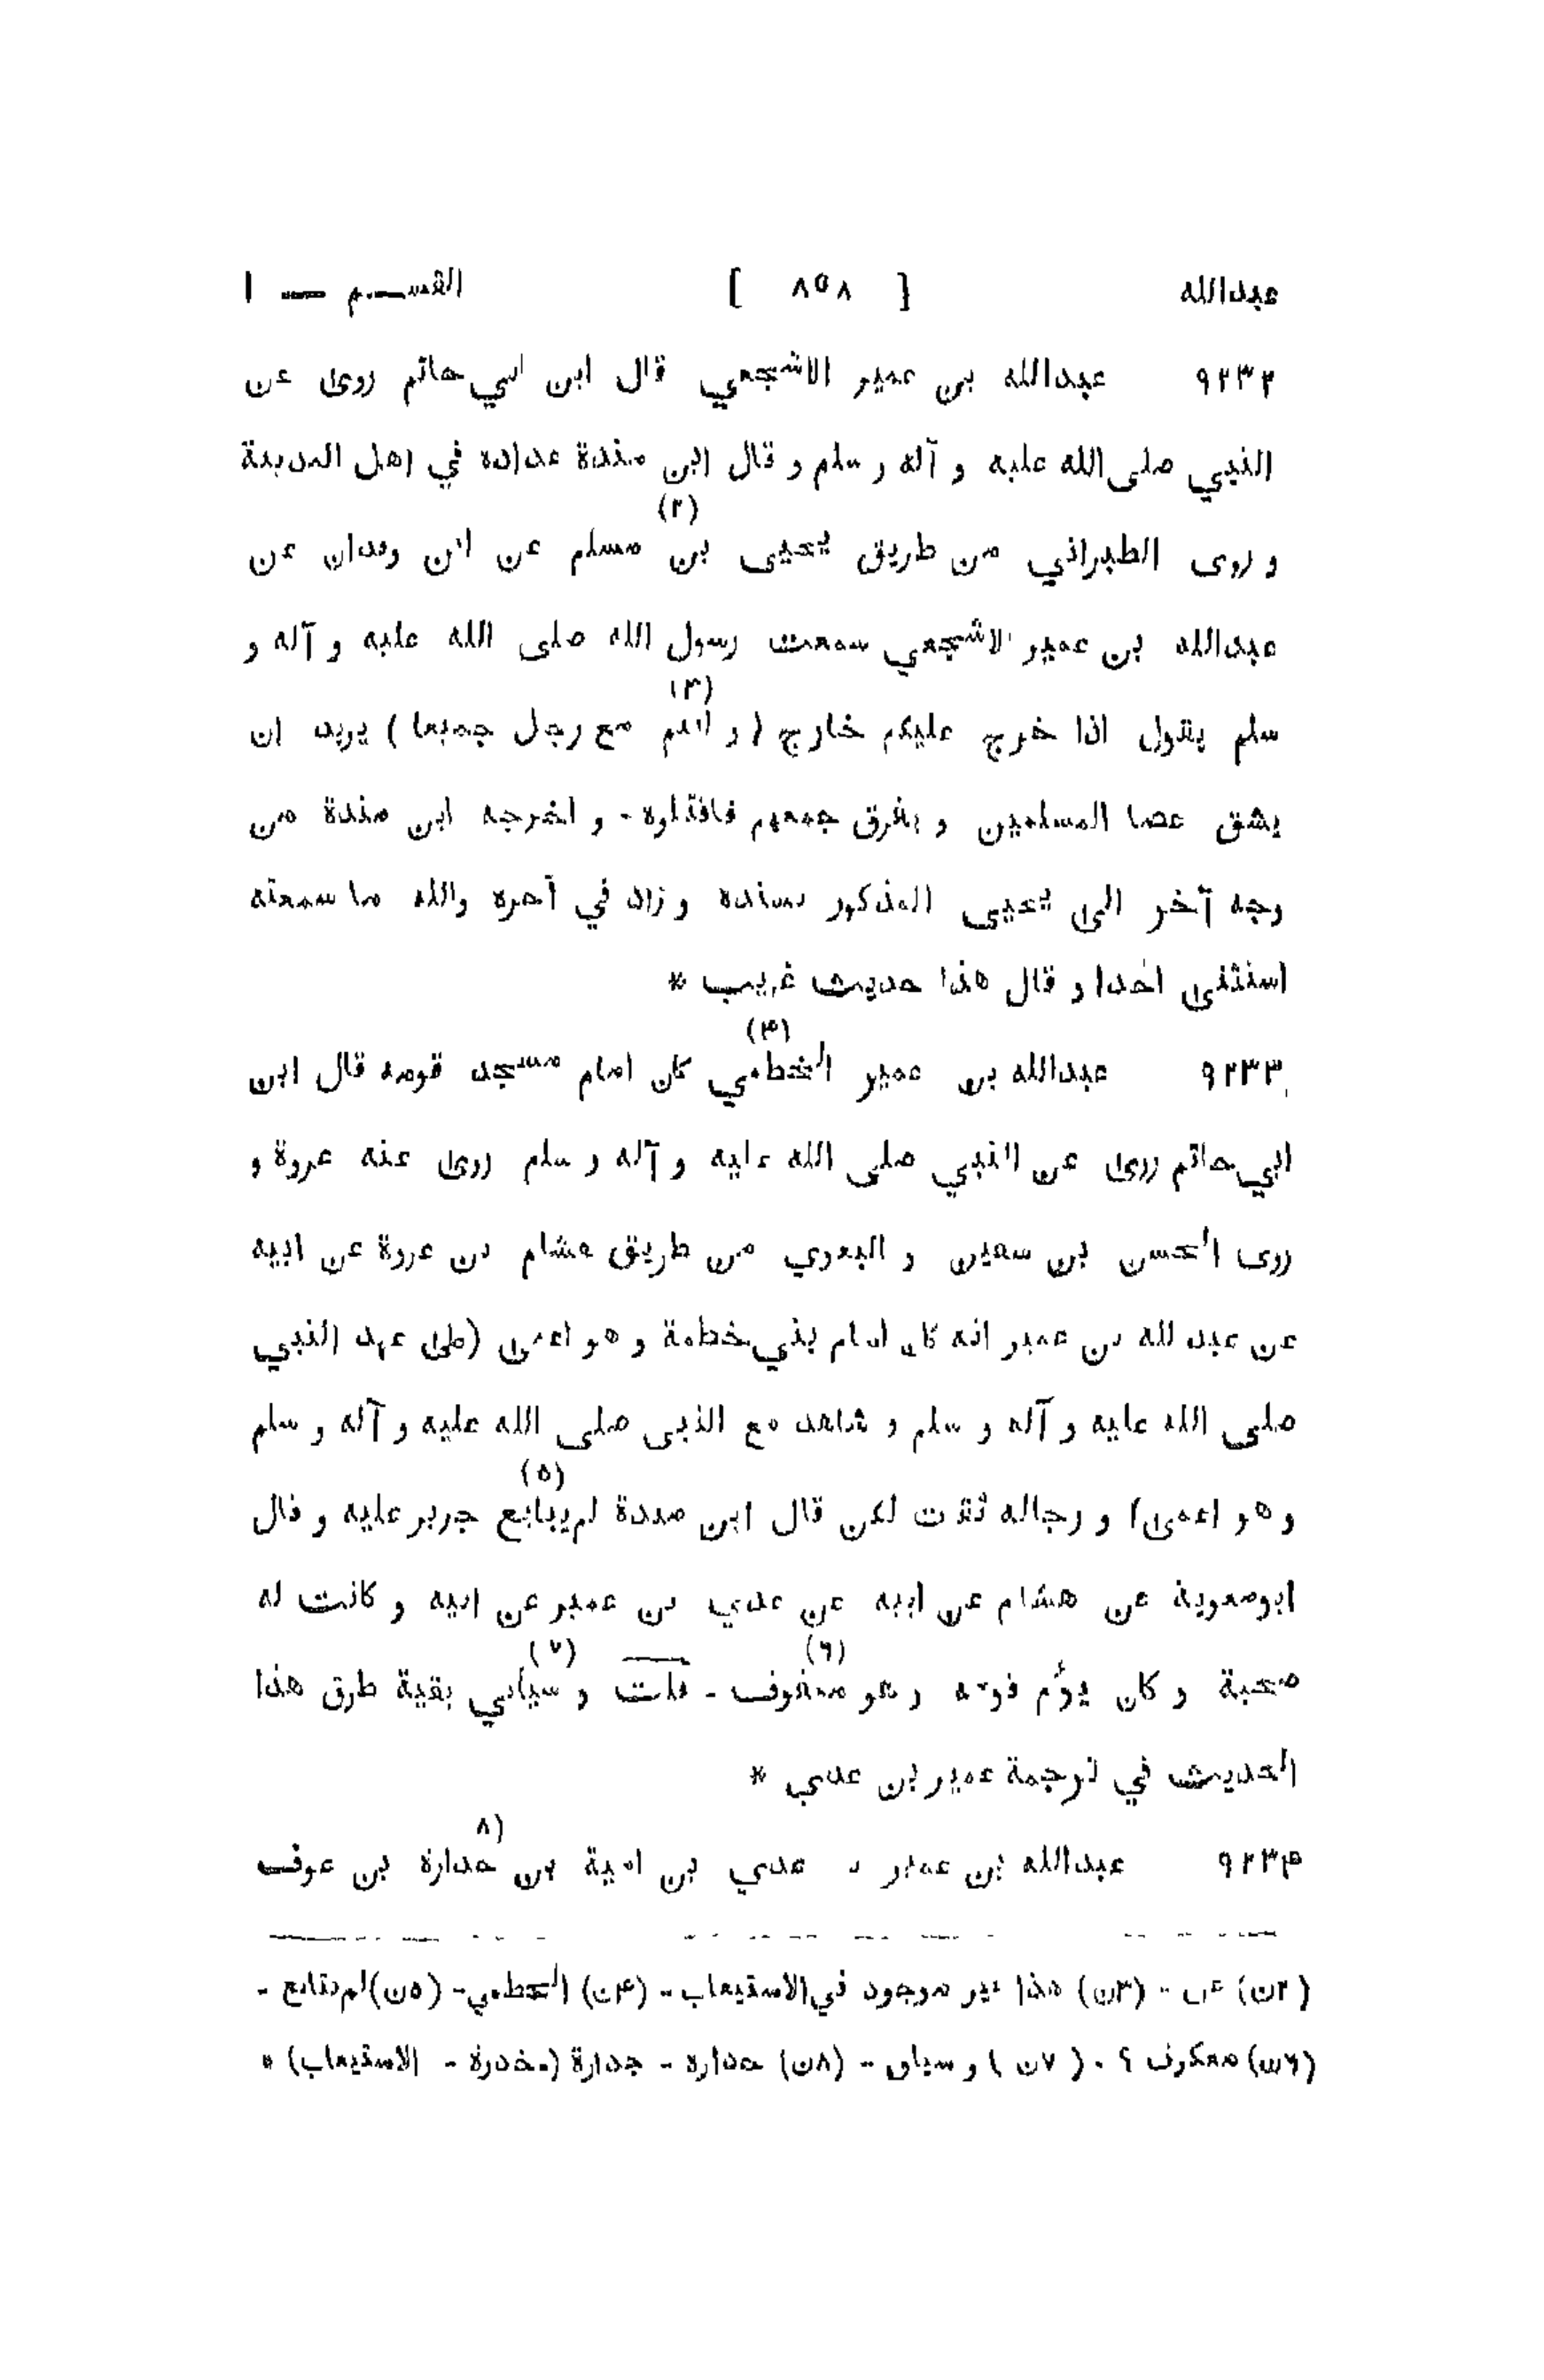 عبدالله [ ٨٥٨ ] القســم — ١
٩٢٣٢ عبدالله بن عمير الاشجعي قال ابن ابي حاتم روى عن
النبي صلى الله عليه و آله و سلم و قال ابن مندة عداده في اهل المدينة
و روى الطبراني من طريق يحيى بن (٢) مسلم عن ابن وقدان عن
عبدالله بن عمير الاشجعي سمعت رسول الله صلى الله عليه و آله و
سلم يقول اذا خرج عليكم خارج ( و انتم (٣) مع رجل جميعا ) يريد ان
يشق عصا المسلمين و يفرق جمعهم فاقتلوه - و اخرجه ابن مندة من
وجه آخر الى يحيى المذكور بسنده و زاد في آخره والله ما سمعته
استثنى احدا و قال هذا حديث غريب *
٩٢٣٣ عبدالله بن عمير الخطمي (۴) كان امام مسجد قومه قال ابن
ابي حاتم روى عن النبي صلى الله عليه و آله و سلم روى عنه عروة و
روى الحسن بن سفين و البغوي من طريق هشام بن عروة عن ابيه
عن عبد لله بن عمير انه كان امام بني خطمة و هو اعمى (على عهد النبي
صلى الله عليه و آله و سلم و شاهد مع النبى صلى الله عليه و آله و سلم
و هو اعمى) و رجاله ثقت لكن قال ابن مندة لم يبايع (٥) جرير عليه و قال
ابو معوية عن هشام عن ابيه عن عدي بن عمير عن ابيه و كانت له
صحبة و كان يؤم قومه و هو معفوف (٦) - قلت و سياتي (٧) بقية طرق هذا
الحديث في ترجمة عمير بن عدي *
٩٢٣۴ عبدالله بن عمير بن عدي بن امية بن حدارة (٨ بن عوف
(٢ن) عن - (٣ن) هذا غير موجود في الاستيعاب - (۴ن) الحطمي - (٥ن) لم يتابع -
(٦ن) معكوف ؟ - (٧ن) و سياق - (٨ن) حداره - جدارة (خدرة - الاستيعاب) *